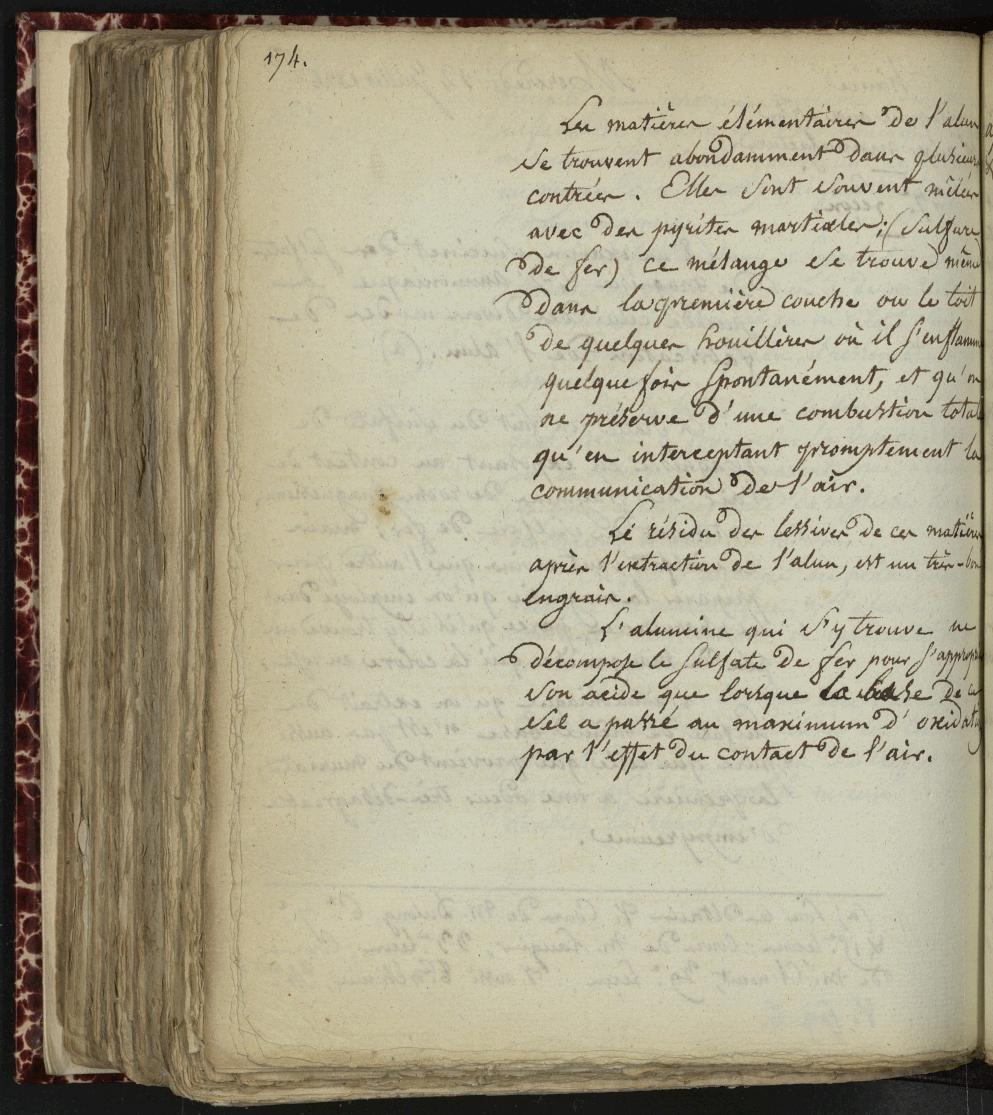 174.
Les matières élémentaires de l'alun
se trouvent abondamment dans plusieurs
contrées. Elles sont souvent mêlées
avec des pyrites martiales; (Sulfure
de fer) ce mélange se trouve même
dans la première couche ou le toit
de quelques houillères où il s'enflamme
quelque fois spontanément, et qu'on
ne préserve d'une combustion totale
qu'en interceptant promptement la
communication de l'air.
Le résidu des lessives de ces matières
après l'extraction de l'alun, est un très-bon
engrais.
L'alumine qui s'y trouve ne
décompose le sulfate de fer pour s'approprier
son acide que lorsque la base de ce
sel a passé au maximum d'oxidat
par l'effet du contact de l'air.